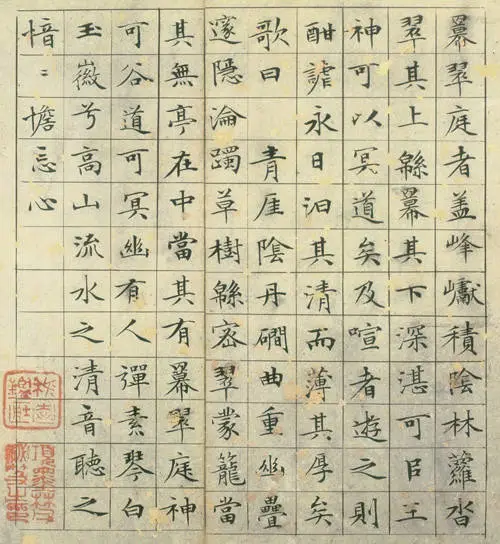 羃翠庭者盖峰巘積陰林蘿沓
翠其上緜羃其下深湛可㠯王
神可以冥道矣及喧者遊之則
酣謔永日汩其清而薄其厚矣
歌曰 青厓陰丹磵曲重幽疊
邃隱淪躅草樹緜密翠蒙籠當
其無亭在中當其有羃翠庭神
可谷道可冥幽有人彈素琴白
玉徽兮高山流水之清音聽之
愔〻憺忘心
項墨林父秘笈之印